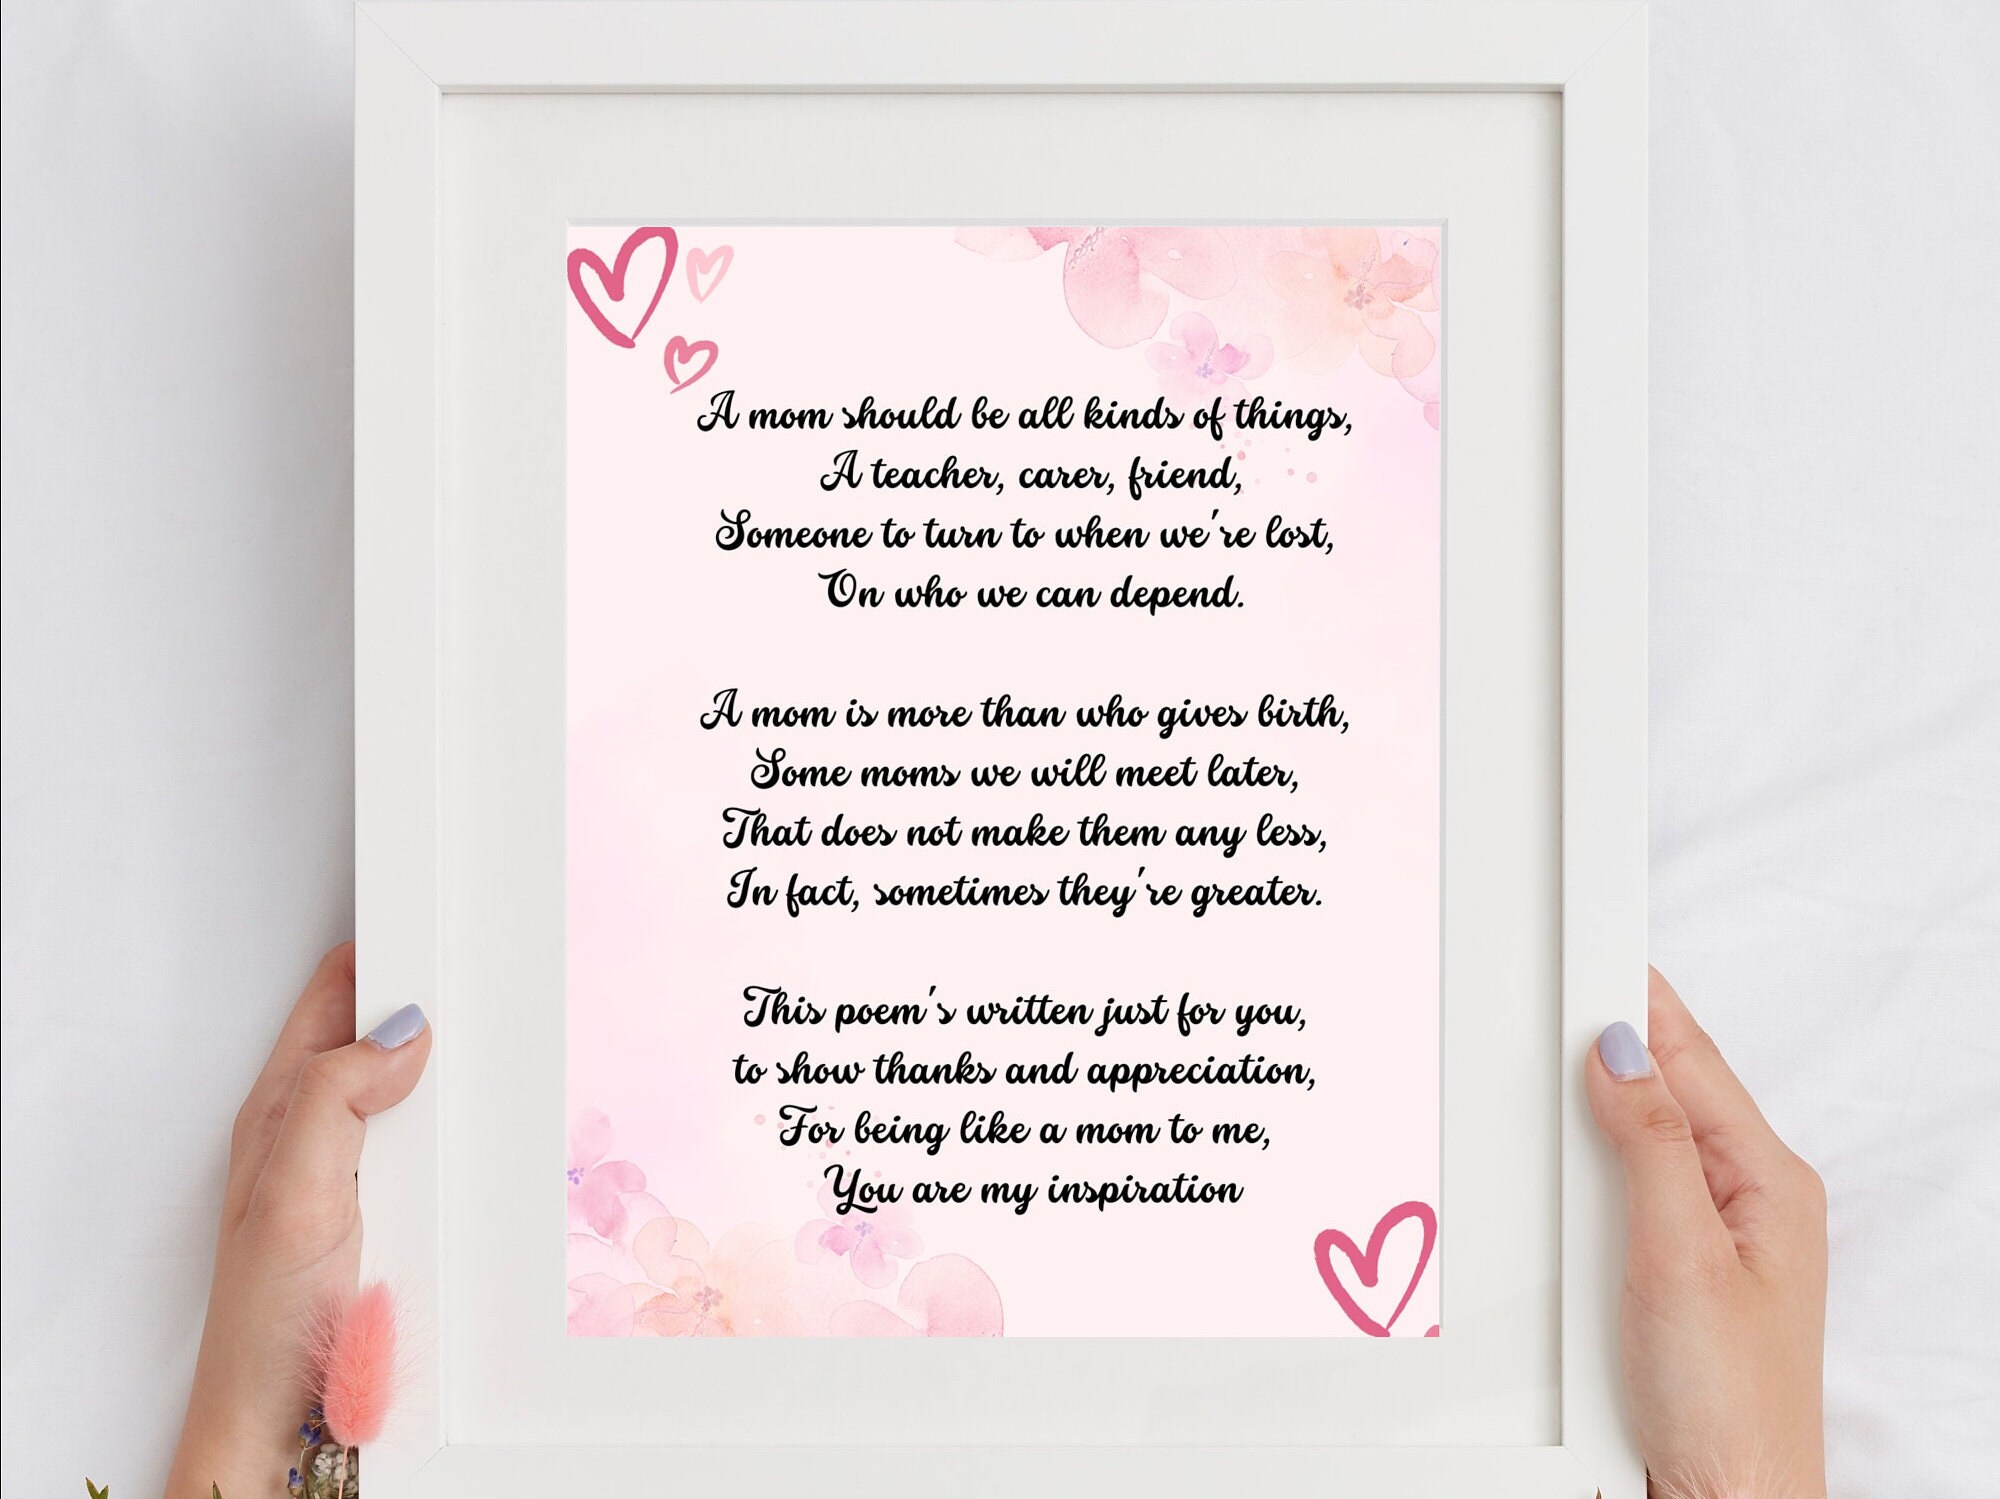 A mom should be all kinds of things,
A teacher, carer, friend,
Someone to turn to when we're lost,
On who we can depend.
A mom is more than who gives birth,
Some moms we will meet later,
That does not make them any less,
In fact, sometimes they're greater.
This poem's written just for you,
to show thanks and appreciation,
For being like a mom to me,
You are my inspiration